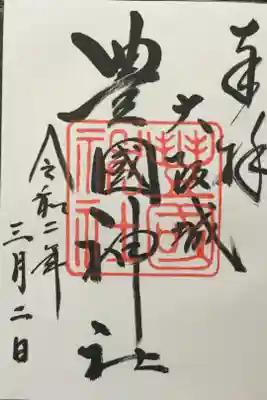 奉拝
大阪城
豊國神社
令和二年
三月二日
豐國神社